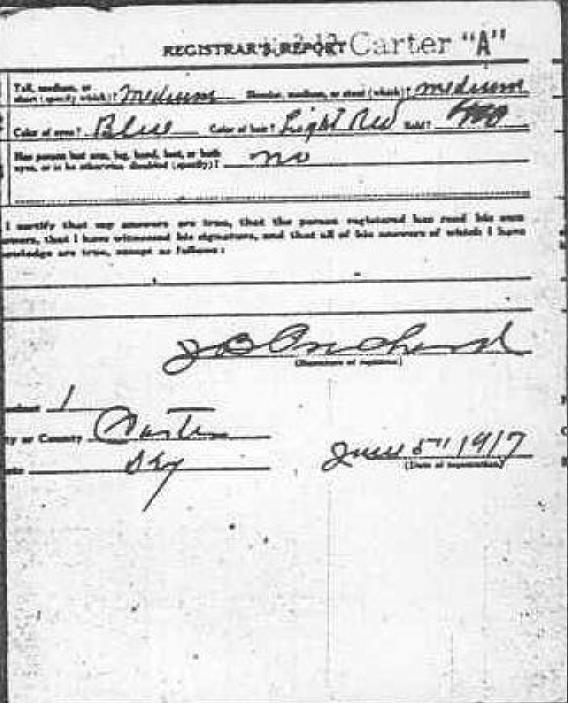 REGISTRAR'S REPORT Carter "A"
Tall, medium, or short (specify which)? Medium Slender, medium, or stout (which)? medium
Color of eyes? Blue Color of hair? Light Red Bald? no
Has person lost arm, leg, hand, foot, or both
eyes, or is he otherwise disabled (specify)? no
I certify that my answers are true, that the person registered has read his own
answers, that I have witnessed his signature, and that all of his answers of which I have
knowledge are true, except as follows:
J B
(Signature of registrar)
1
ty or County Carter
Ky
June 5" 1917
(Date of registration)